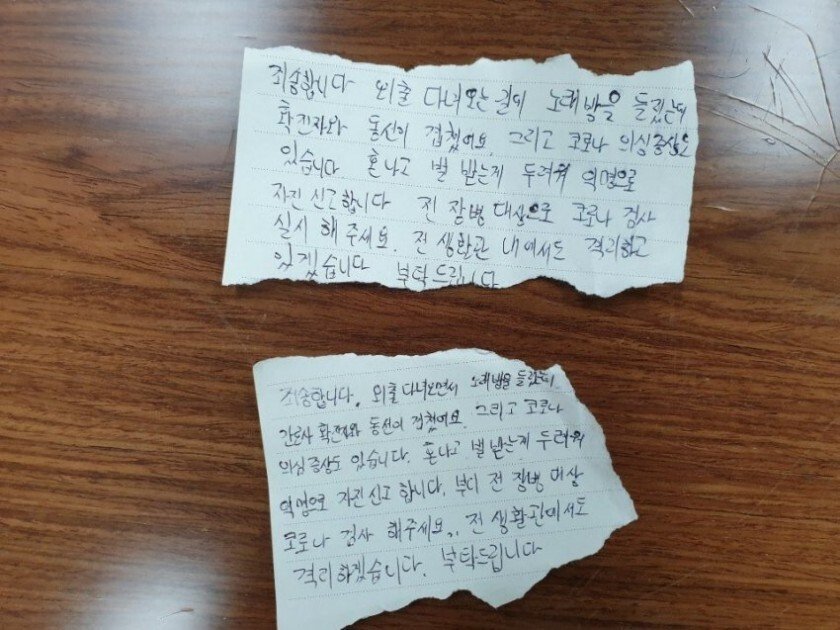 죄송합니다 외출 다녀오는길에 노래방을 들렸는데
확진자와 동선이 겹쳤어요. 그리고 코로나 의심증상도
있습니다 혼나고 벌 받는지 두려워 익명으로
자진 신고합니다 전 장병 대상으로 코로나 검사
실시 해 주세요. 전 생활관 내에서도 격리하고
있겠습니다 부탁드립니다
죄송합니다. 외출 다녀오면서 노래방을 들렸는데
간호사 확진자와 동선이 겹쳤어요. 그리고 코로나
의심증상도 있습니다. 혼나고 벌 받는지 두려워
익명으로 자진신고 합니다. 부디 전 장병 대상
코로나 검사 해주세요.. 전 생활관에서도
격리하겠습니다. 부탁드립니다